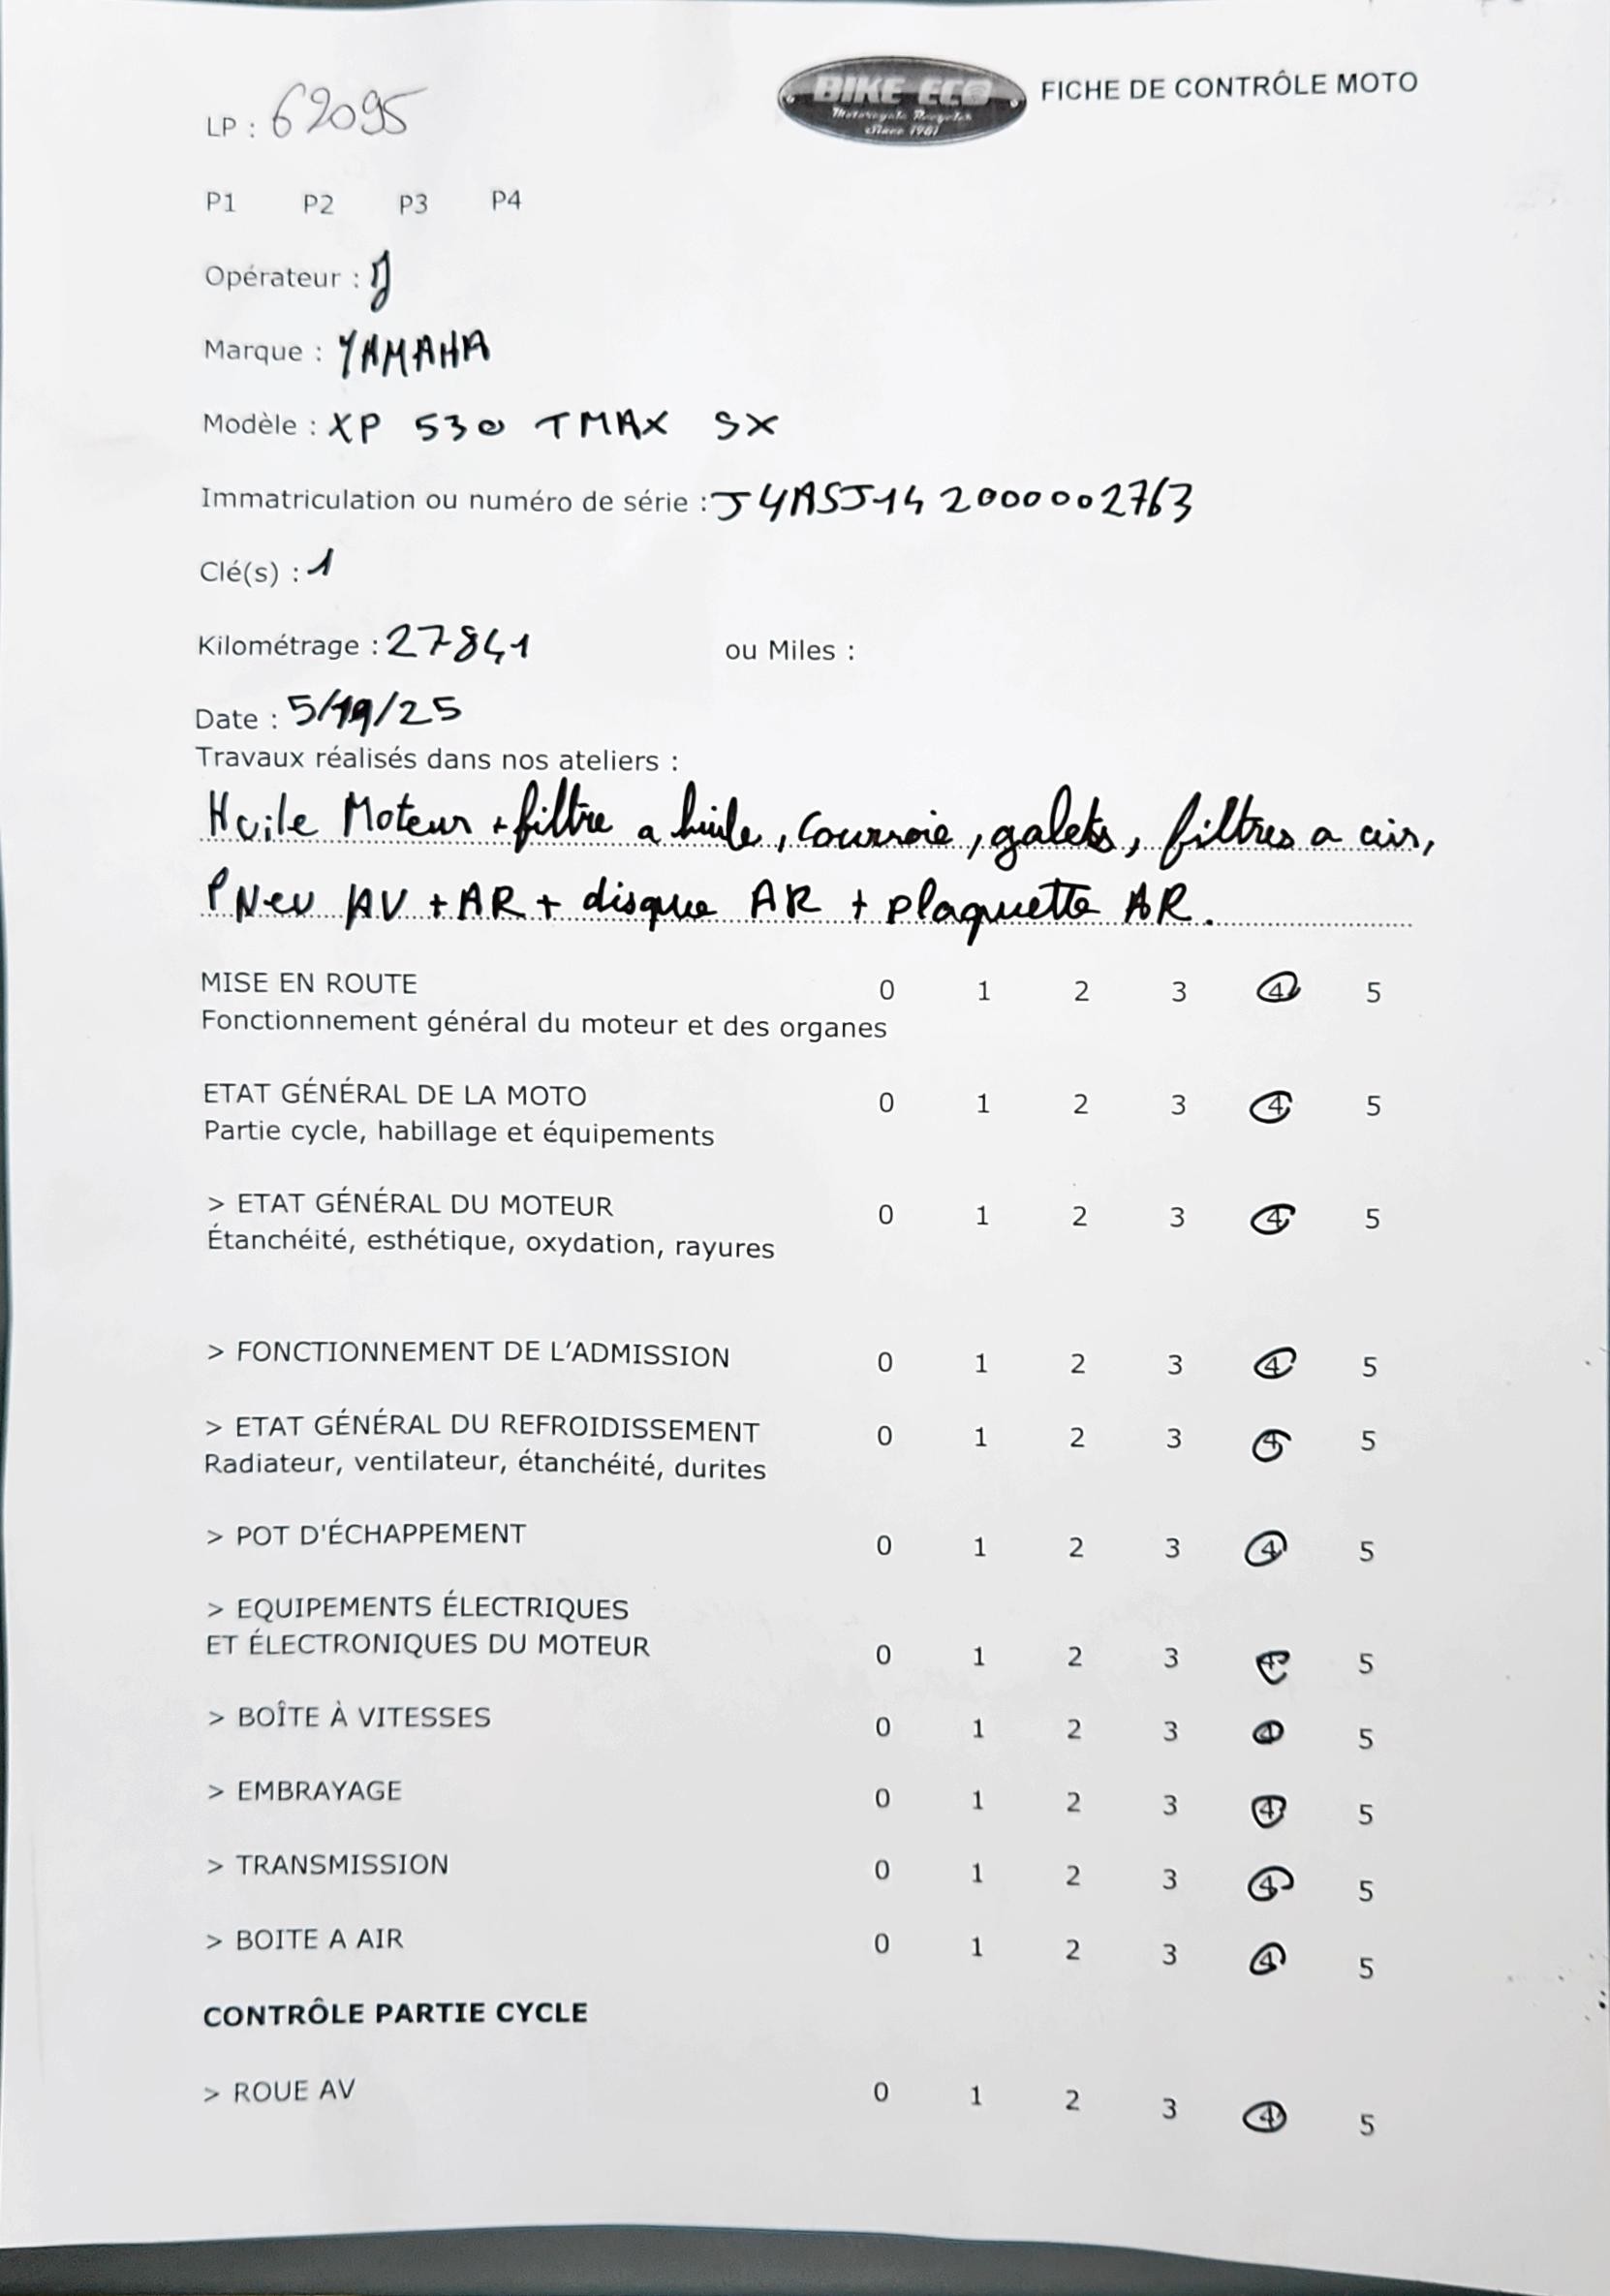 BIKE ECO
Motorcycle Recycler
Since 1981
FICHE DE CONTRÔLE MOTO
LP : 62095
P1 P2 P3 P4
Opérateur : J
Marque : YAMAHA
Modèle : XP 530 TMAX SX
Immatriculation ou numéro de série : J4ASJ142000002763
Clé(s) : 1
Kilométrage : 27841 ou Miles :
Date : 5/19/25
Travaux réalisés dans nos ateliers :
Huile Moteur + filtre a huile, Courroie, galets, filtres a air,
PNeu AV + AR + disque AR + plaquette AR.
MISE EN ROUTE 0 1 2 3 4 5
Fonctionnement général du moteur et des organes
ETAT GÉNÉRAL DE LA MOTO 0 1 2 3 4 5
Partie cycle, habillage et équipements
> ETAT GÉNÉRAL DU MOTEUR 0 1 2 3 4 5
Étanchéité, esthétique, oxydation, rayures
> FONCTIONNEMENT DE L'ADMISSION 0 1 2 3 4 5
> ETAT GÉNÉRAL DU REFROIDISSEMENT 0 1 2 3 4 5
Radiateur, ventilateur, étanchéité, durites
> POT D'ÉCHAPPEMENT 0 1 2 3 4 5
> EQUIPEMENTS ÉLECTRIQUES
ET ÉLECTRONIQUES DU MOTEUR 0 1 2 3 4 5
> BOÎTE À VITESSES 0 1 2 3 4 5
> EMBRAYAGE 0 1 2 3 4 5
> TRANSMISSION 0 1 2 3 4 5
> BOITE A AIR 0 1 2 3 4 5
CONTRÔLE PARTIE CYCLE
> ROUE AV 0 1 2 3 4 5